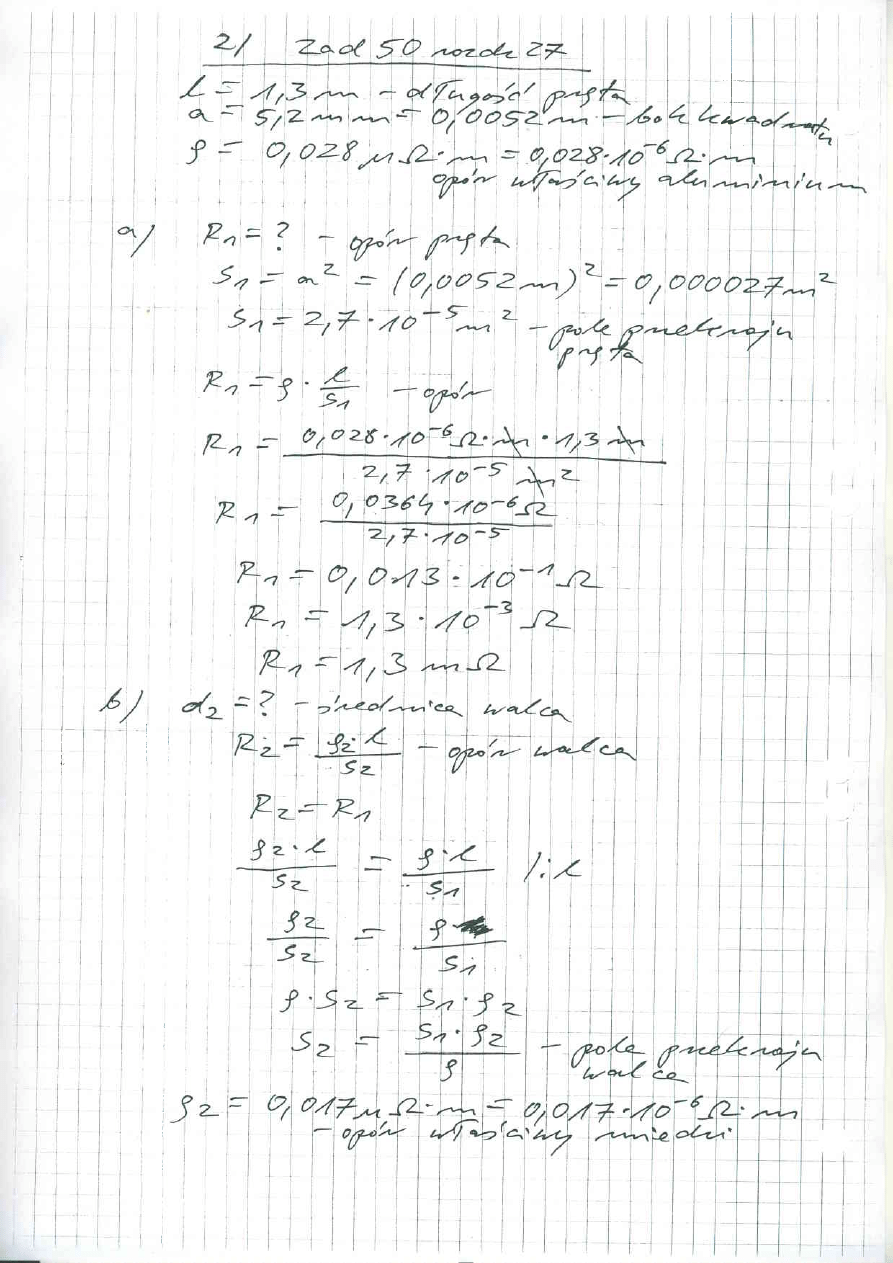 2/ Zad 50 rozdz 27
l = 1,3 m – długość pręta
a = 5,2 mm = 0,0052 m – bok kwadratu
ρ = 0,028 μΩ·m = 0,028·10⁻⁶ Ω·m
opór właściwy aluminium
a) R₁ = ? – opór pręta
S₁ = a² = (0,0052 m)² = 0,000027 m²
S₁ = 2,7·10⁻⁵ m² – pole przekroju
pręta
R₁ = ρ · l/S₁ – opór
R₁ = 0,028·10⁻⁶ Ω·m · 1,3 m / 2,7·10⁻⁵ m²
R₁ = 0,0364·10⁻⁶ Ω / 2,7·10⁻⁵
R₁ = 0,013·10⁻¹ Ω
R₁ = 1,3·10⁻³ Ω
R₁ = 1,3 mΩ
b) d₂ = ? – średnica walca
R₂ = ρ₂·l / S₂ – opór walca
R₂ = R₁
ρ₂·l / S₂ = ρ·l / S₁ /:l
ρ₂ / S₂ = ρ / S₁
ρ·S₂ = S₁·ρ₂
S₂ = S₁·ρ₂ / ρ – pole przekroju
walca
ρ₂ = 0,017 μΩ·m = 0,017·10⁻⁶ Ω·m
– opór właściwy miedzi